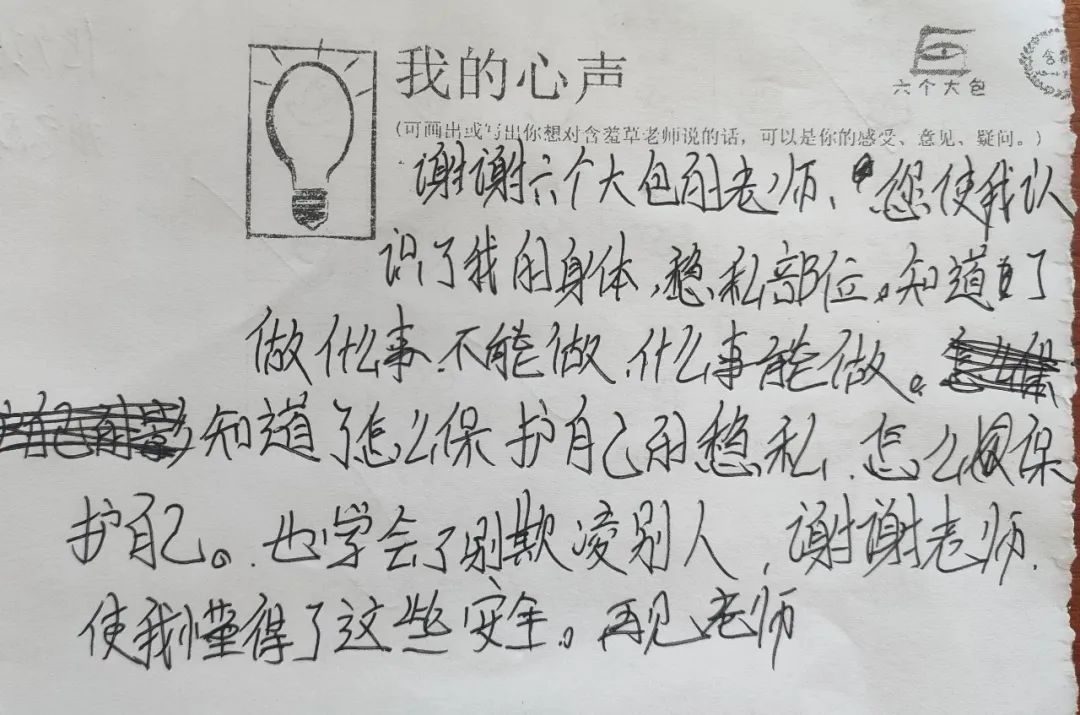 我的心声
六个大包
(可画出或写出你想对含羞草老师说的话，可以是你的感受、意见、疑问。)
谢谢六个大包的老师、您使我认
识了我的身体，稳私部位。知道了
做什么事.不能做.什么事能做。
知道了怎么保护自己的稳私.怎么保
护自己。也学会了别欺凌别人，谢谢老师.
使我懂得了这些安全。再见老师